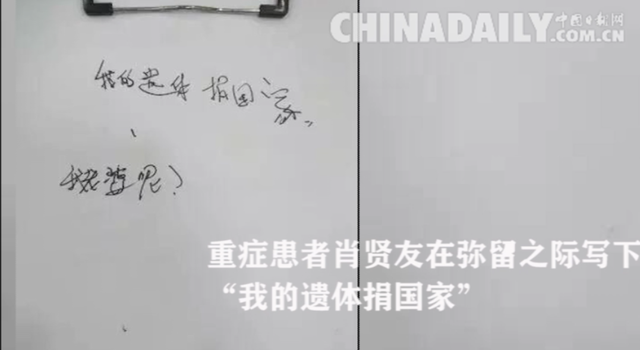 CHINADAILY.COM.CN 中国日报网
我的遗体捐国家。
我老婆呢？
重症患者肖贤友在弥留之际写下
“我的遗体捐国家”